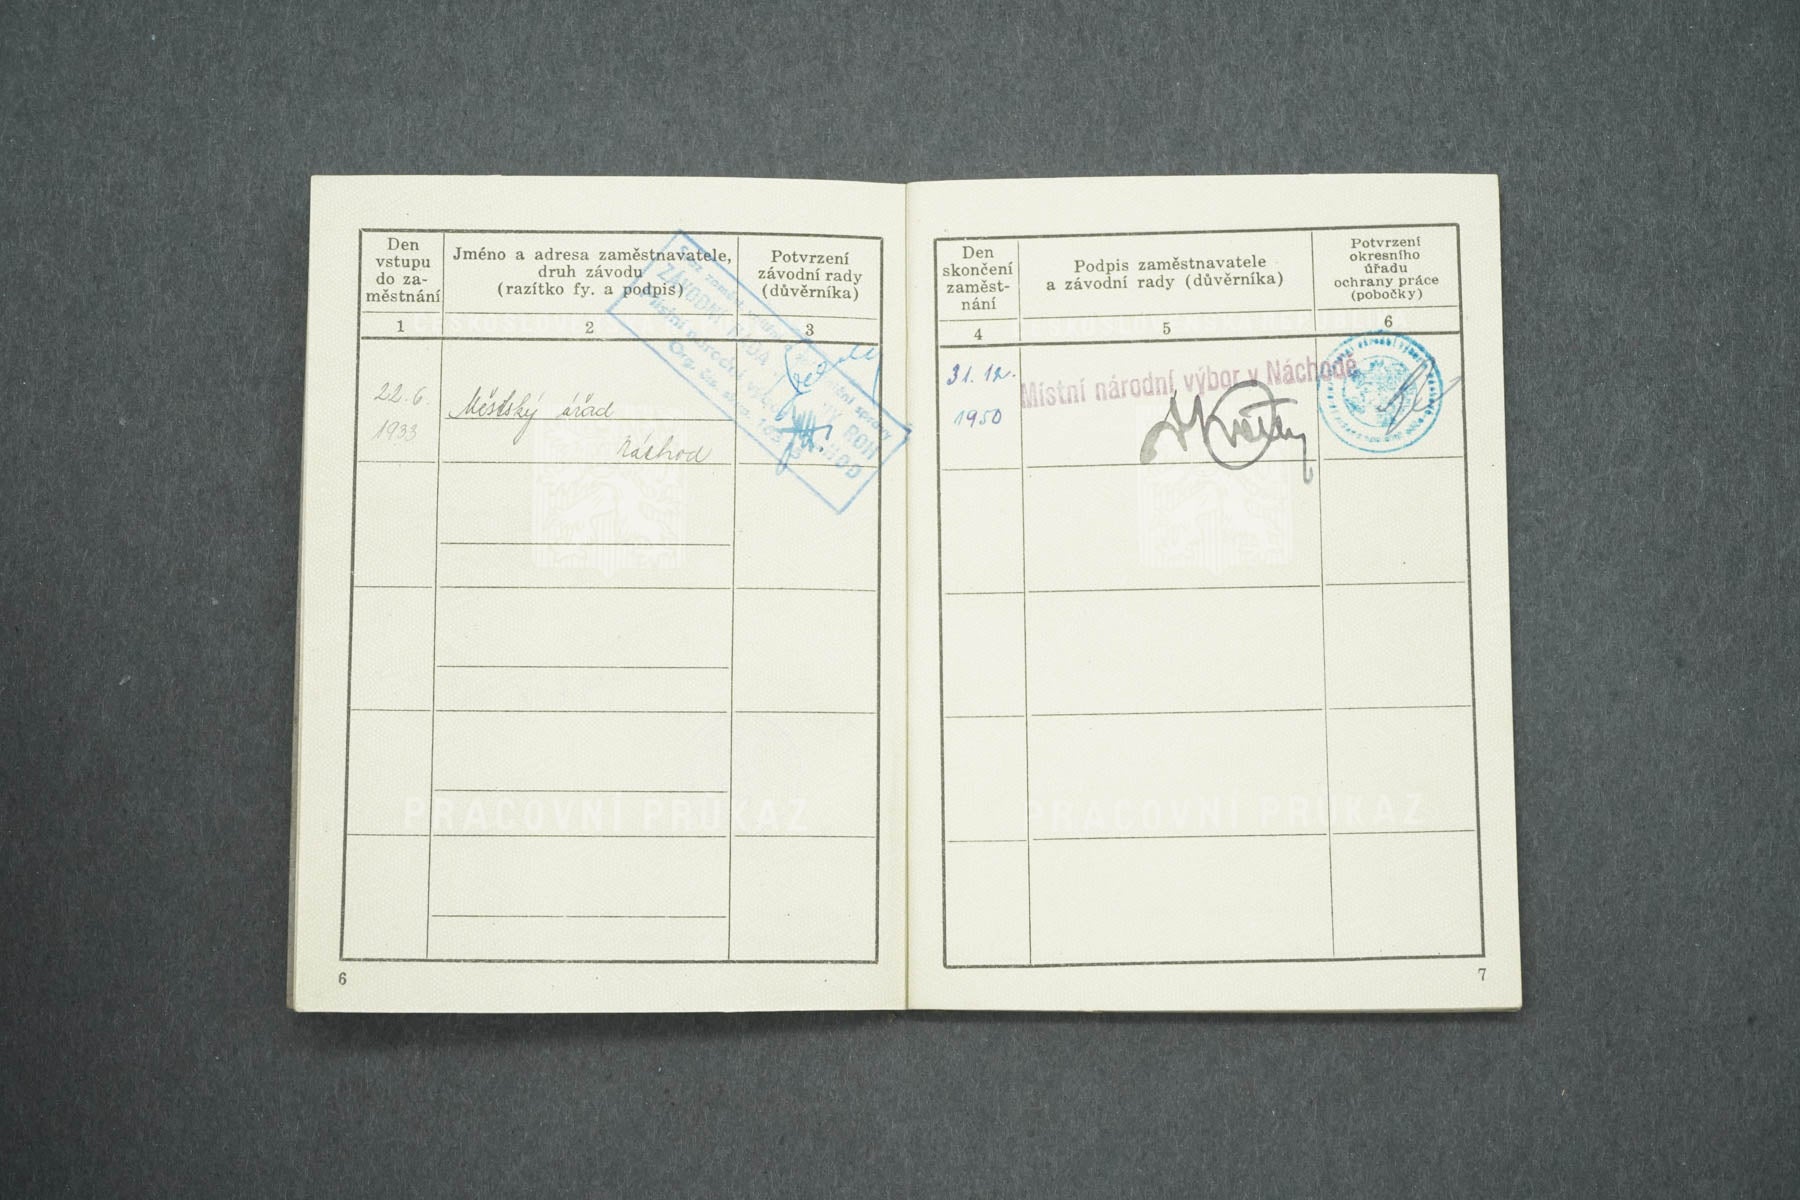 Den
vstupu
do za-
městnání
Jméno a adresa zaměstnavatele,
druh závodu
(razítko fy. a podpis)
Potvrzení
závodní rady
(důvěrníka)
1
2
3
22. 6.
1933
Městský úřad
Náchod
ZÁVODNÍ RADA
Místní národní výbor
NÁCHOD
PRACOVNÍ PRŮKAZ
6
Den
skončení
zaměst-
nání
Podpis zaměstnavatele
a závodní rady (důvěrníka)
Potvrzení
okresního
úřadu
ochrany práce
(pobočky)
4
5
6
31. 12.
1950
Místní národní výbor v Náchodě
PRACOVNÍ PRŮKAZ
7